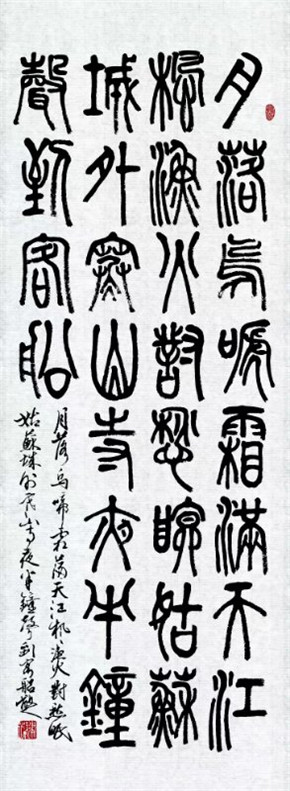 月落烏啼霜滿天江
楓漁火對愁眠姑蘇
城外寒山寺夜半鐘
聲到客船
月落烏啼霜滿天江楓漁火對愁眠
姑蘇城外寒山寺夜半鐘聲到客船